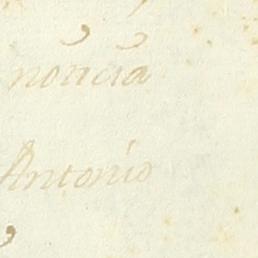 noticia
Antonio